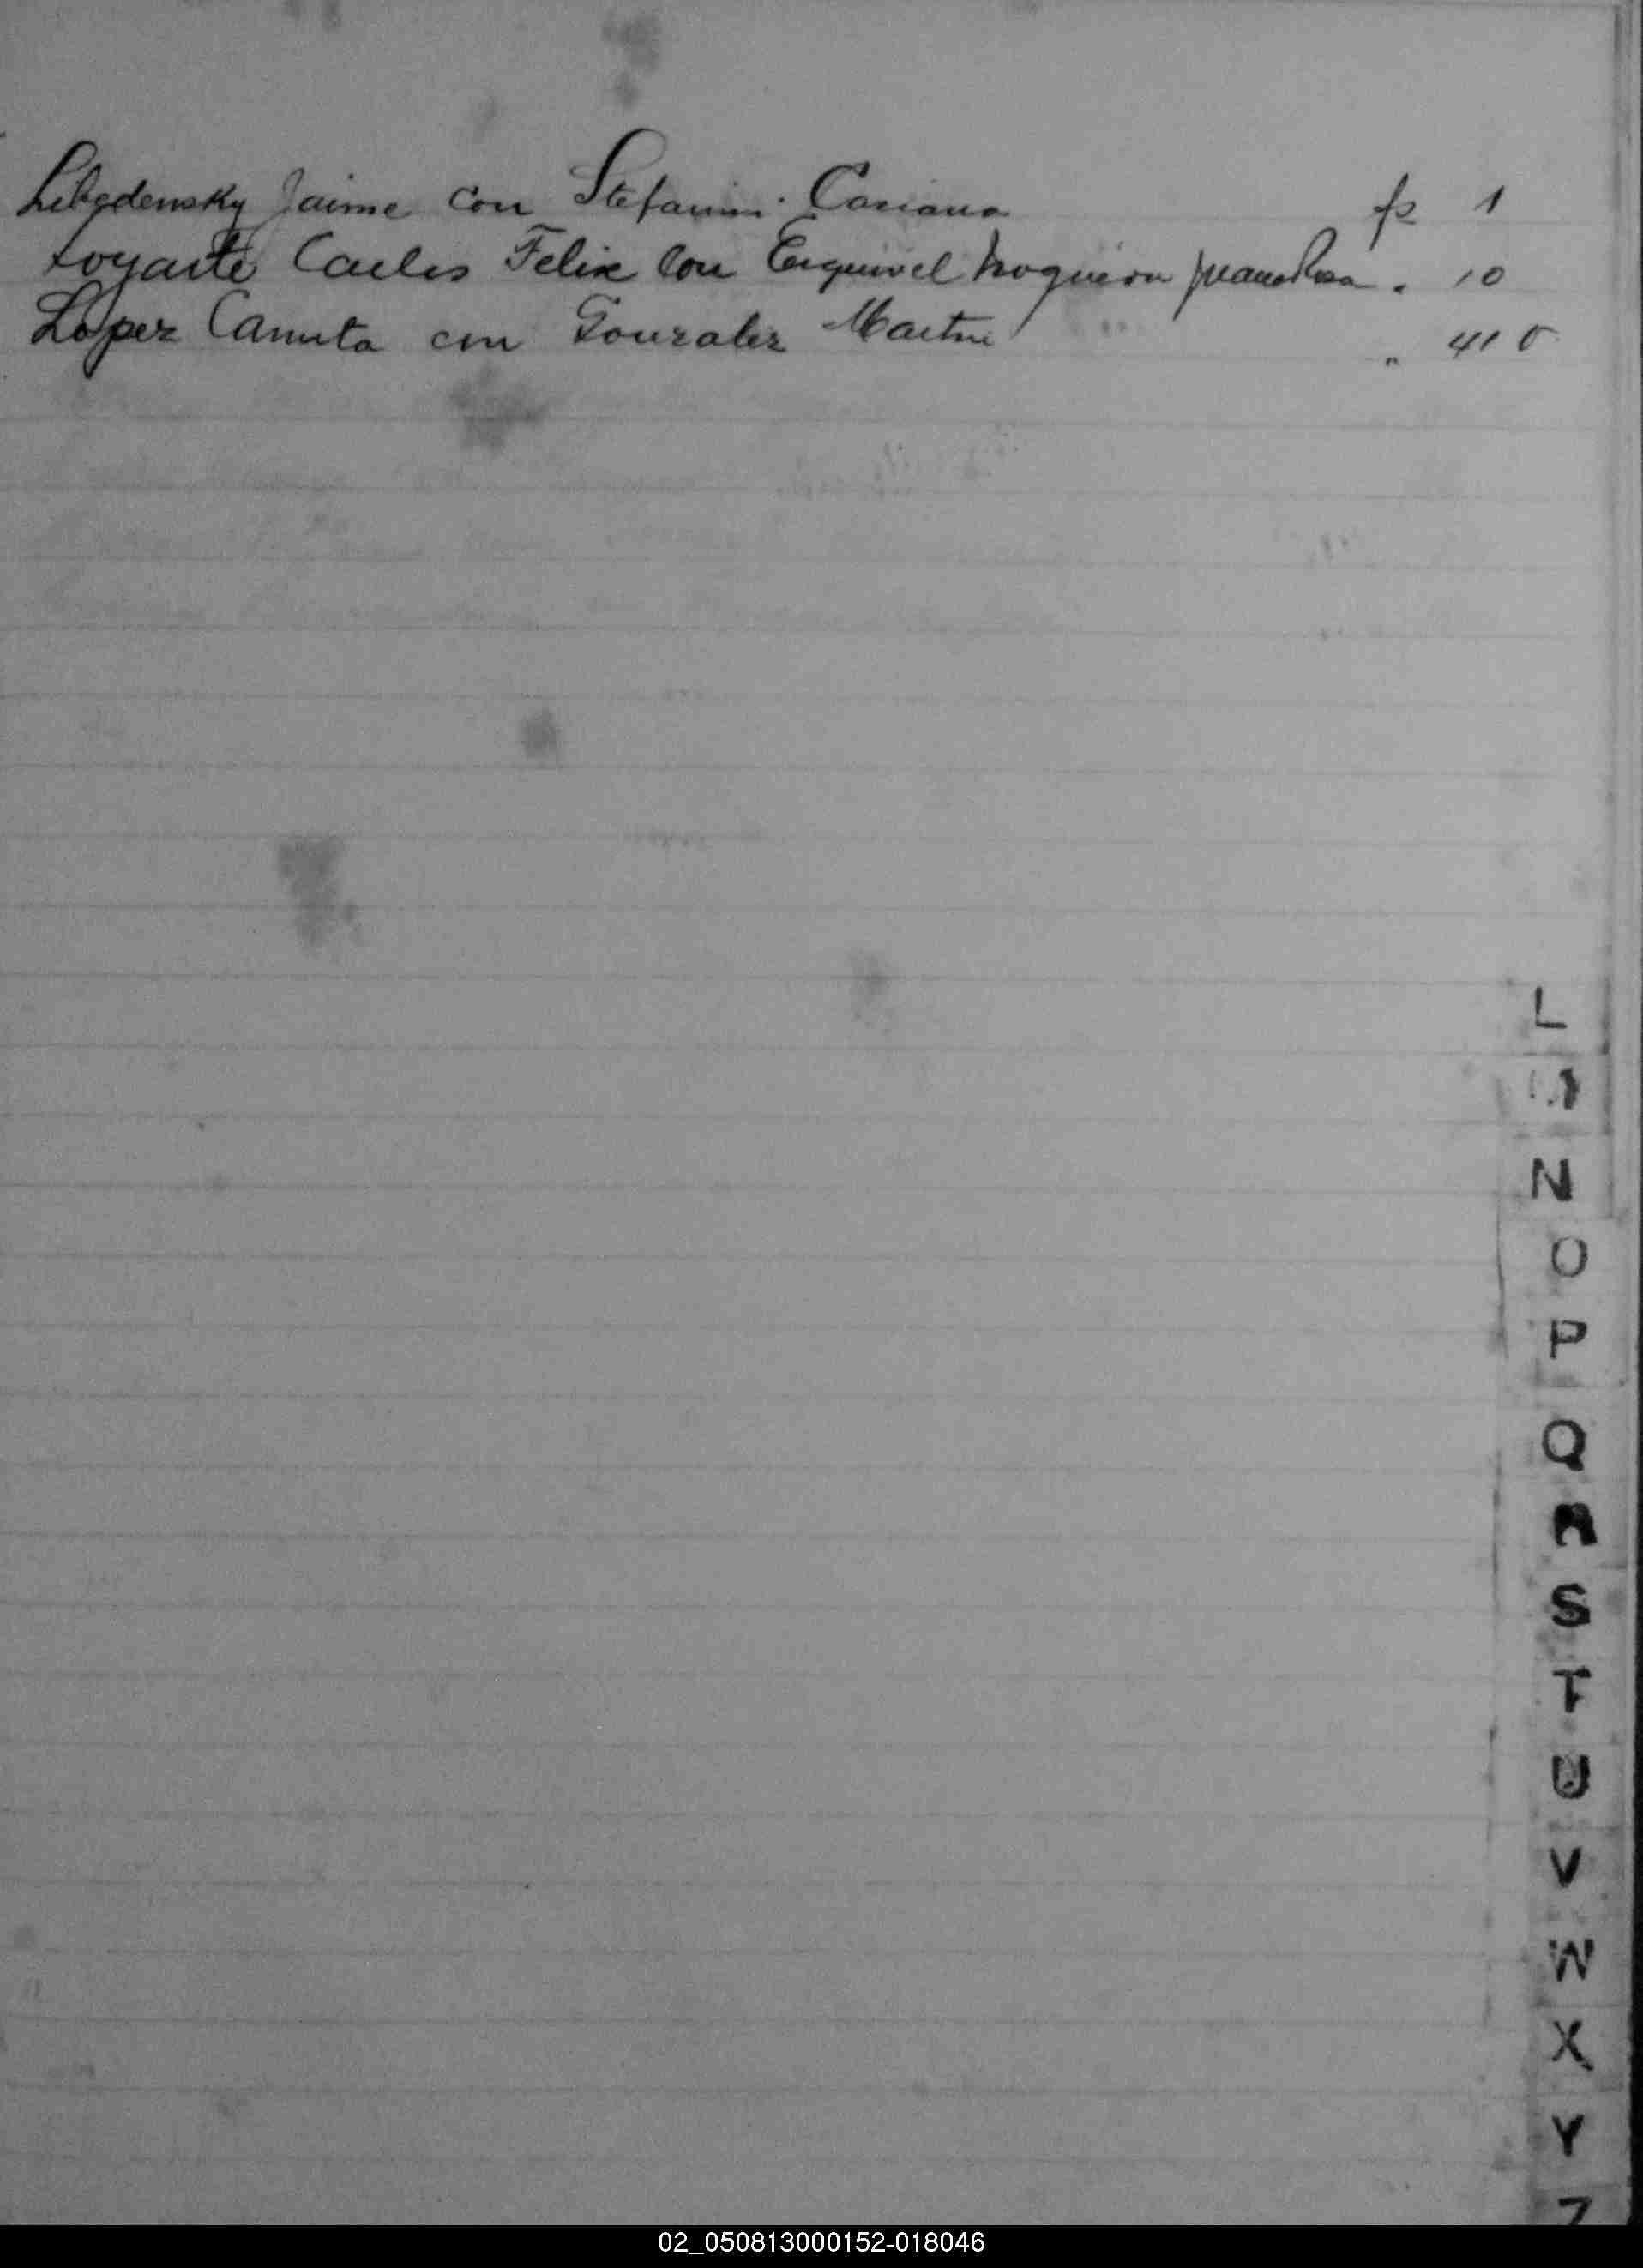 Libedensky Jaime con Stefanini Casiana fs 1
Loyarte Carlos Felix con Esquivel Noguera Juana Rosa " 10
Lopez Canuta con Gonzalez Martin " 410
L
M
N
O
P
Q
R
S
T
U
V
W
X
Y
Z
02_050813000152-018046